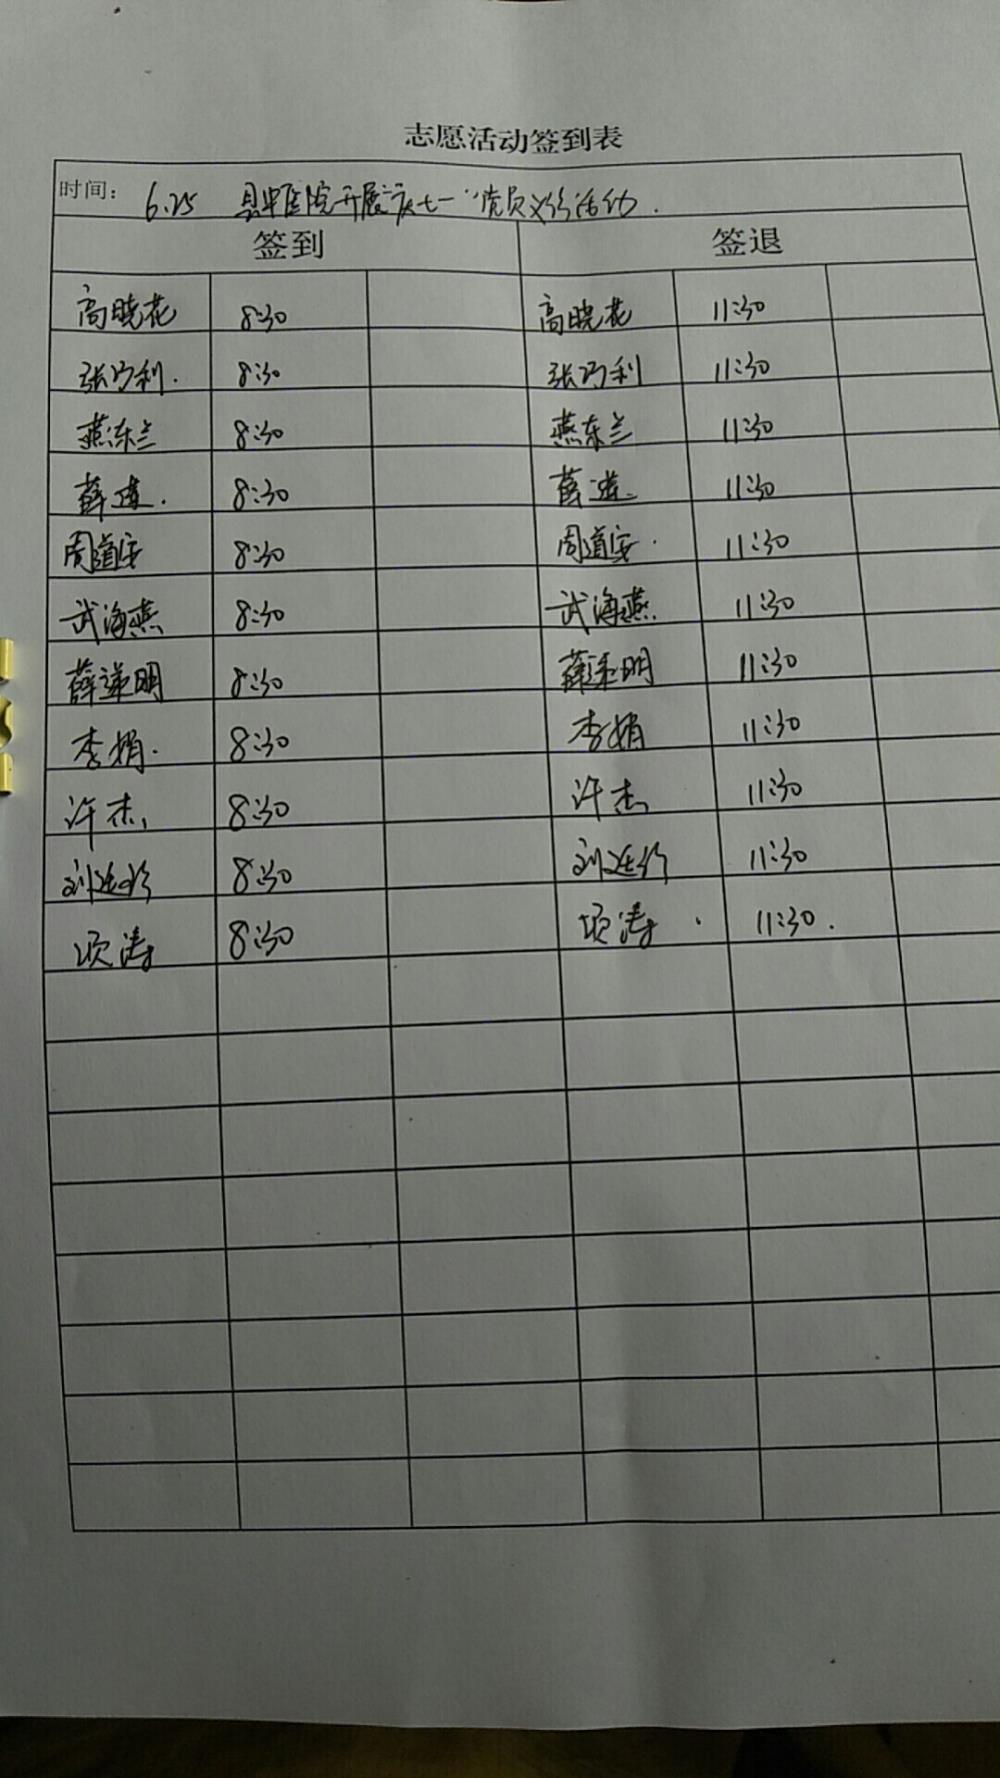 志愿活动签到表
时间： 6.25 县中医院开展"庆七一"党员义诊活动.
签到 签退
高晓花 8:30 高晓花 11:30
张巧利. 8:30 张巧利 11:30
燕东兰 8:30 燕东兰 11:30
薛 . 8:30 薛 11:30
周道安 8:30 周道安. 11:30
武海燕 8:30 武海燕 11:30
薛 明 8:30 薛 明 11:30
李娟. 8:30 李娟 11:30
许杰, 8:30 许杰 11:30
刘延 8:30 刘延 11:30
项涛 8:30 项涛. 11:30.